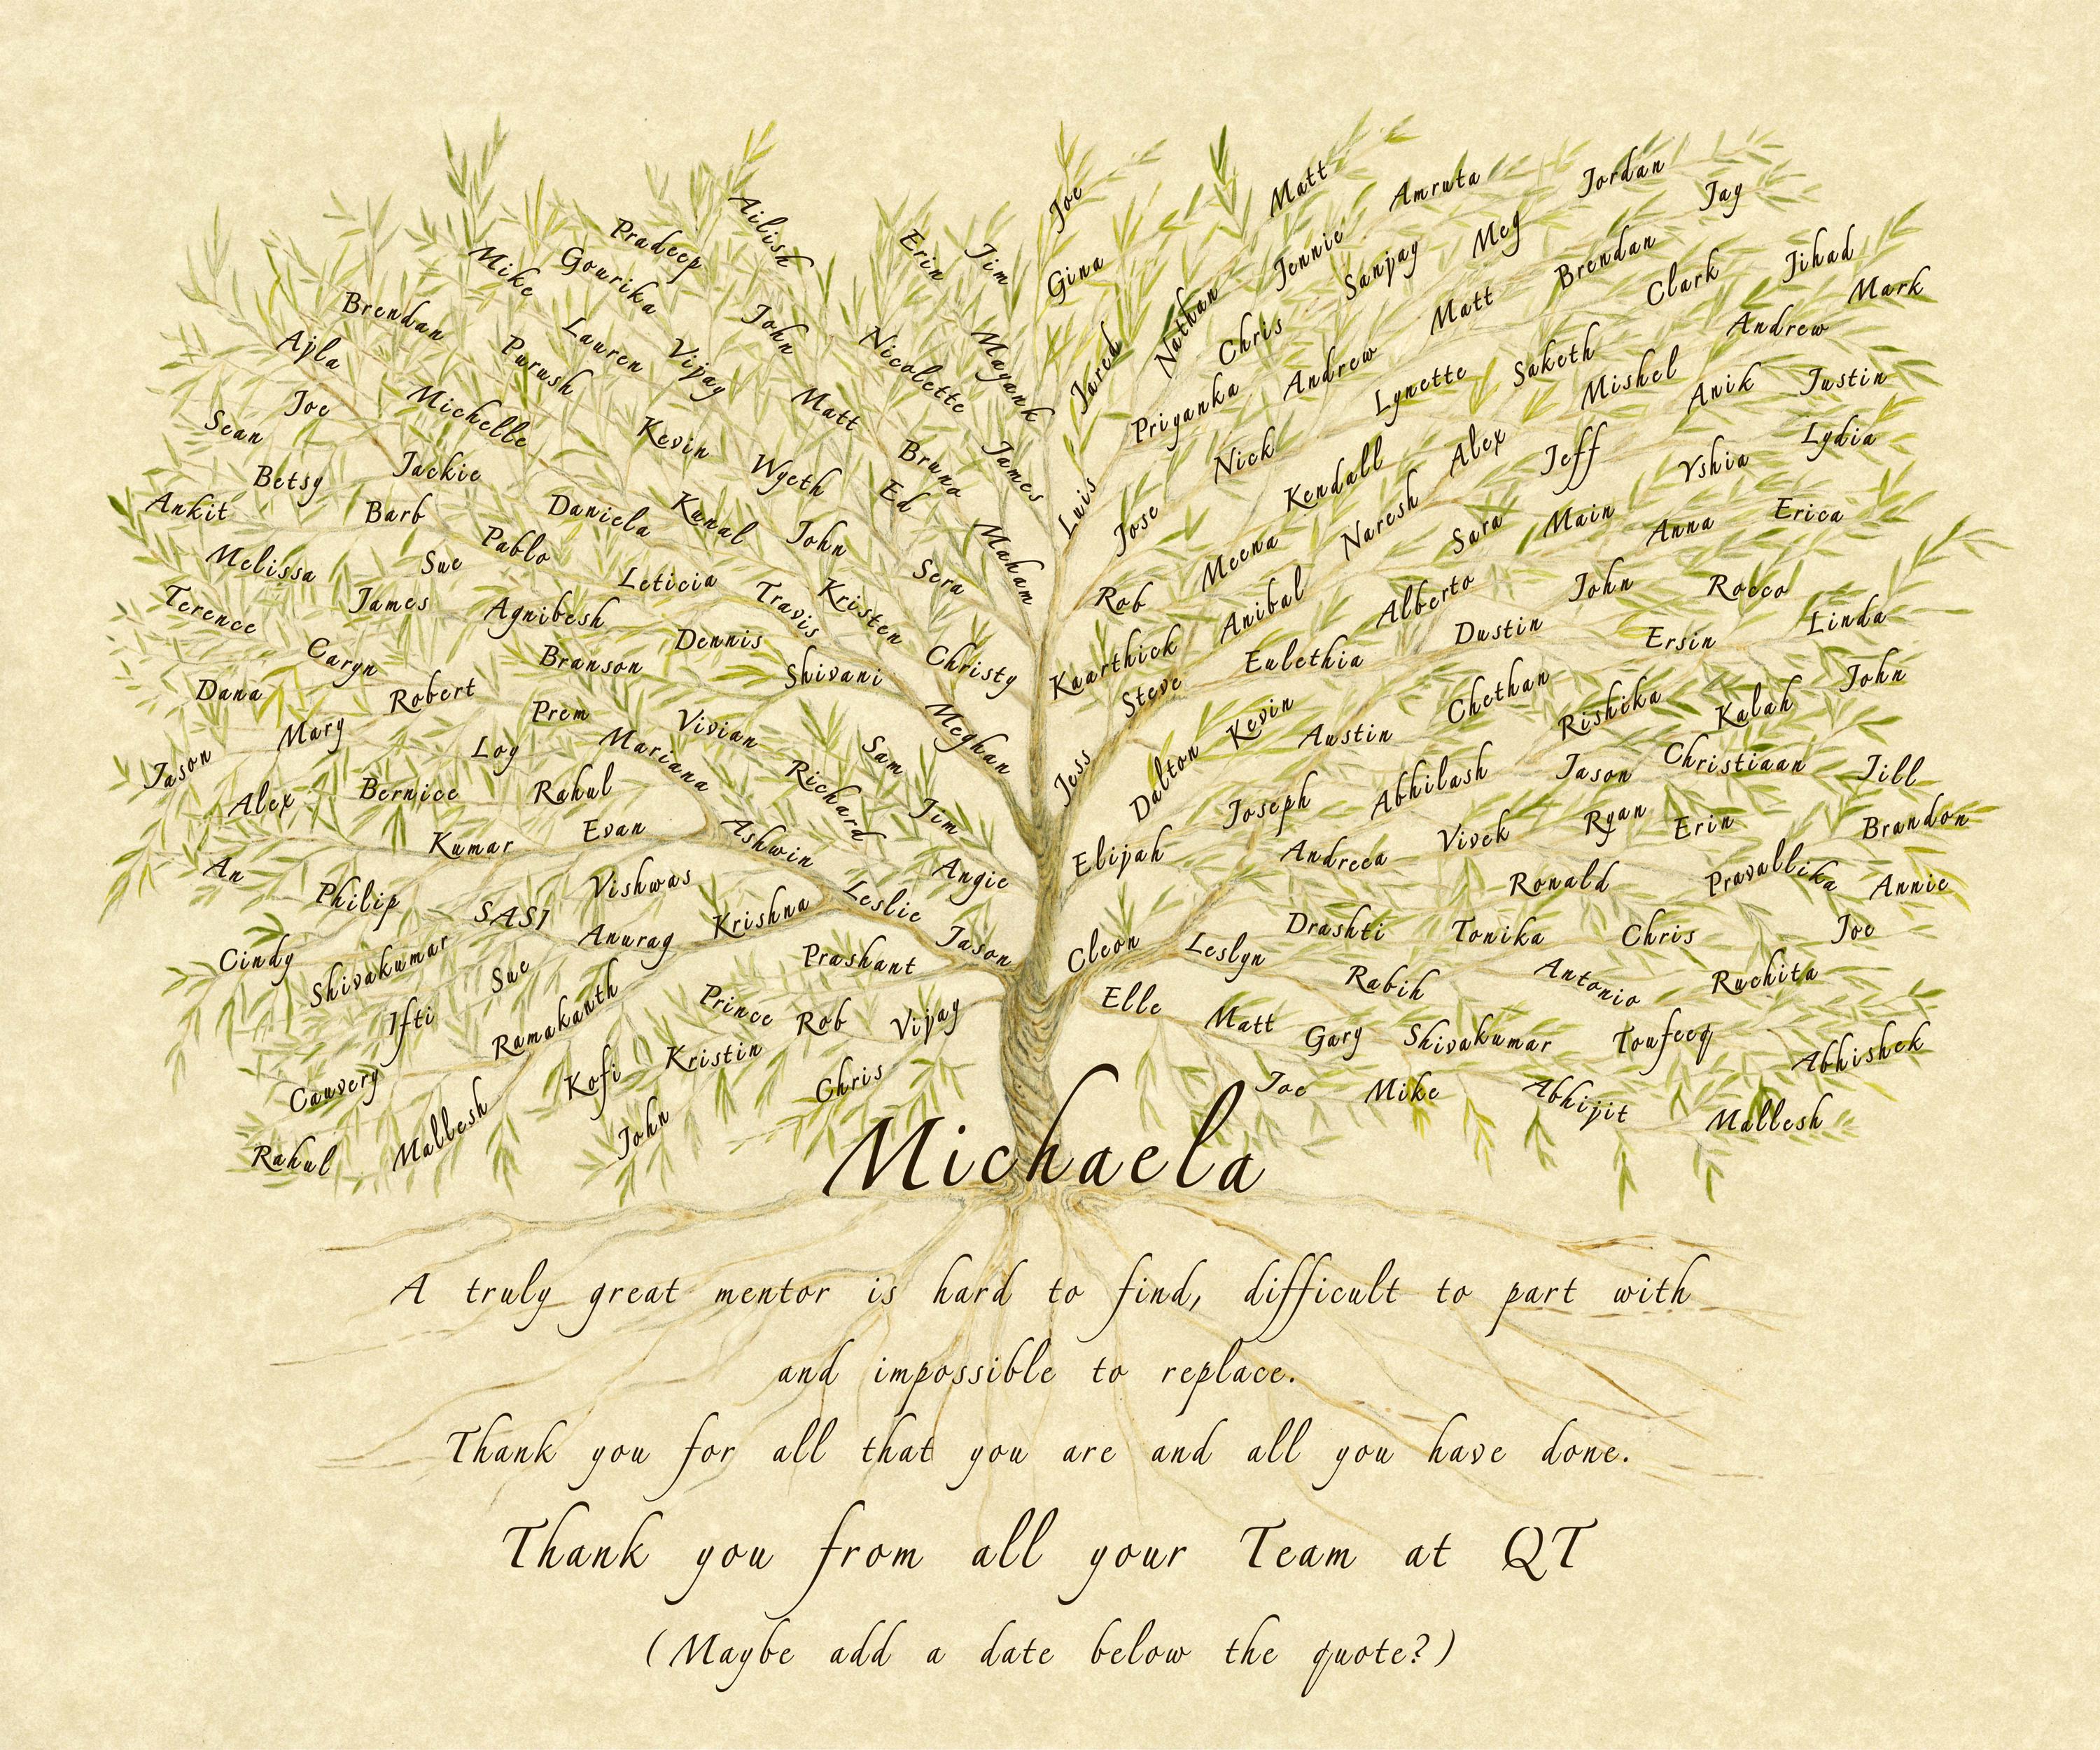 Joe
Matt
Amruta
Jordan
Jay
Ailish
Pradeep
Gourika
Mike
Erin
Jim
Gina
Jennie
Sanjay
Meg
Brendan
Clark
Jihad
Mark
Brendan
Lauren
John
Nathan
Chris
Matt
Andrew
Ajla
Purush
Vijay
Nicolette
Mayank
Jared
Priyanka
Andrew
Lynette
Saketh
Mishel
Anik
Justin
Joe
Michelle
Matt
Sean
Kevin
Nick
Alex
Jeff
Yshia
Lydia
Betsy
Jackie
Wyeth
Bruno
James
Kendall
Ankit
Barb
Daniela
Kunal
Ed
Luis
Jose
Naresh
Sara
Main
Anna
Erica
Melissa
Sue
Pablo
John
Maham
Meena
Leticia
Sera
Terence
James
Agnibesh
Travis
Kristen
Rob
Anibal
Alberto
John
Rocco
Caryn
Branson
Dennis
Shivani
Christy
Kaarthick
Steve
Eulethia
Dustin
Ersin
Linda
Dana
Robert
Prem
Vivian
Meghan
Kevin
Chethan
Rishika
Kalah
John
Mary
Loy
Mariana
Sam
Austin
Jason
Alex
Bernice
Rahul
Richard
Jess
Dalton
Joseph
Abhilash
Jason
Christiaan
Jill
Kumar
Evan
Ashwin
Jim
Elijah
Andreea
Vivek
Ryan
Erin
Brandon
An
Philip
Vishwas
Leslie
Angie
Ronald
Pravallika
Annie
SASI
Anurag
Krishna
Jason
Cleon
Leslyn
Drashti
Tonika
Chris
Joe
Cindy
Shivakumar
Sue
Prashant
Rabih
Antonio
Ruchita
Ifti
Ramakanth
Prince
Rob
Vijay
Elle
Matt
Gary
Shivakumar
Toufeeq
Abhishek
Cauvery
Kofi
Kristin
Chris
Joe
Mike
Abhijit
Mallesh
Rahul
Mallesh
John
Michaela
A truly great mentor is hard to find, difficult to part with
and impossible to replace.
Thank you for all that you are and all you have done.
Thank you from all your Team at QT
(Maybe add a date below the quote?)